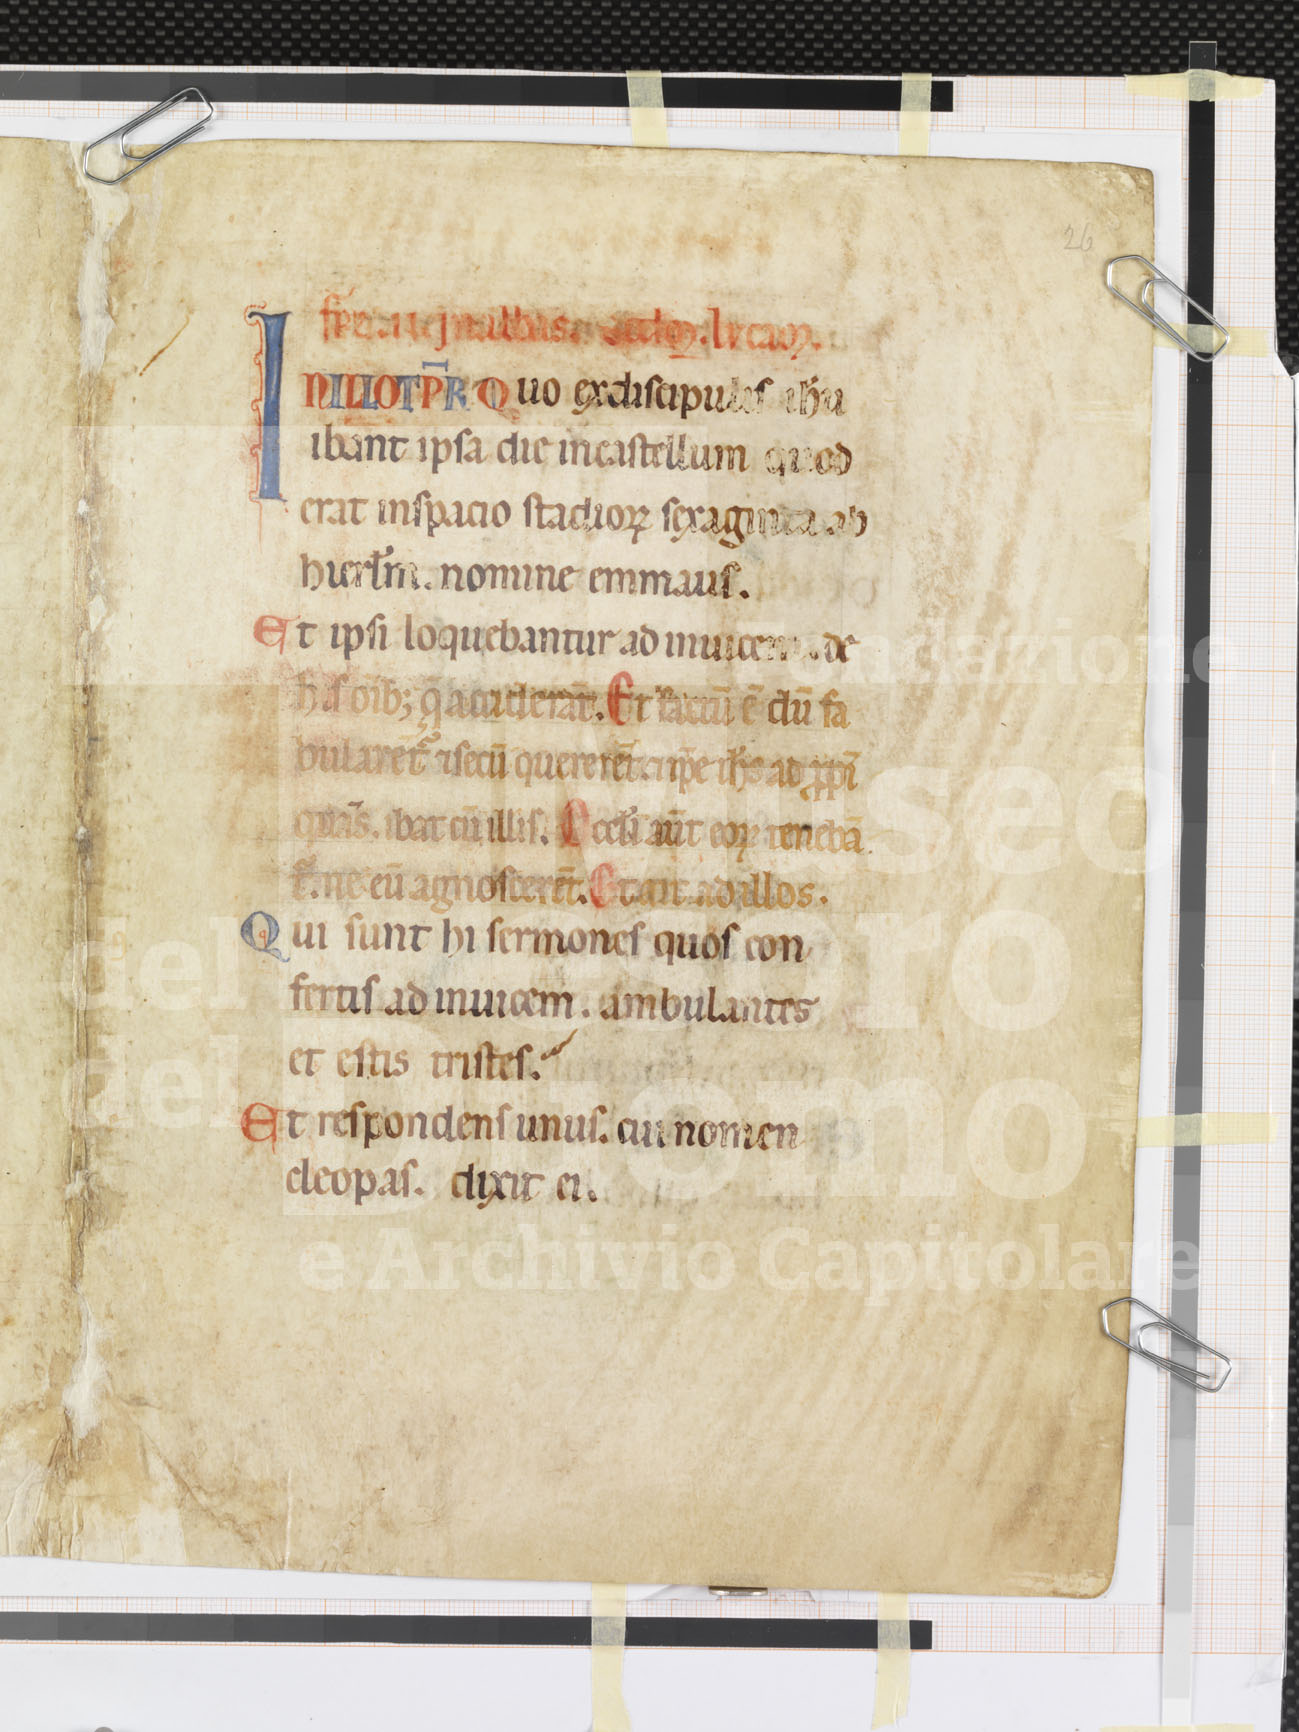 26
fr̄a. ii in albis. scdm̄. lucam.
IN ILLO T̄PR Duo ex discipulis ih̄u
ibant ipsa die in castellum quod
erat in spacio stadioꝝ sexaginta ab
hierl̄m. nomine emmaus.
Et ipsi loquebantur ad inuicem. de
his oīb; q̄ acciderāt. Et factū ē dū fa
bularēt᷑ ⁊ secū quererēt. ⁊ ip̄e ih̄s ad p̱pī
quās. ibat cū illis. Occl̄i aūt eoꝝ tenebā
t᷑. ne eū agnoscerēt. Et ait ad illos.
Qui sunt hi sermones quos con
fertis ad inuicem. ambulantes
et estis tristes.
Et respondens unus. cui nomen
cleopas. dixit ei.
Fondazione
Museo
del Tesoro
del Duomo
e Archivio Capitolare